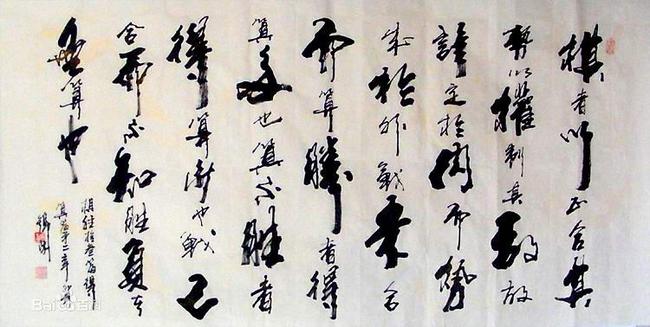 棋者以正合其
勢以權制其敵故
計定於內而勢
成於外戰未合
而算勝者得
算多也算不胜者
得算少也戰已
合而不知胜負者
無算也
算篇第二章
Bai百科